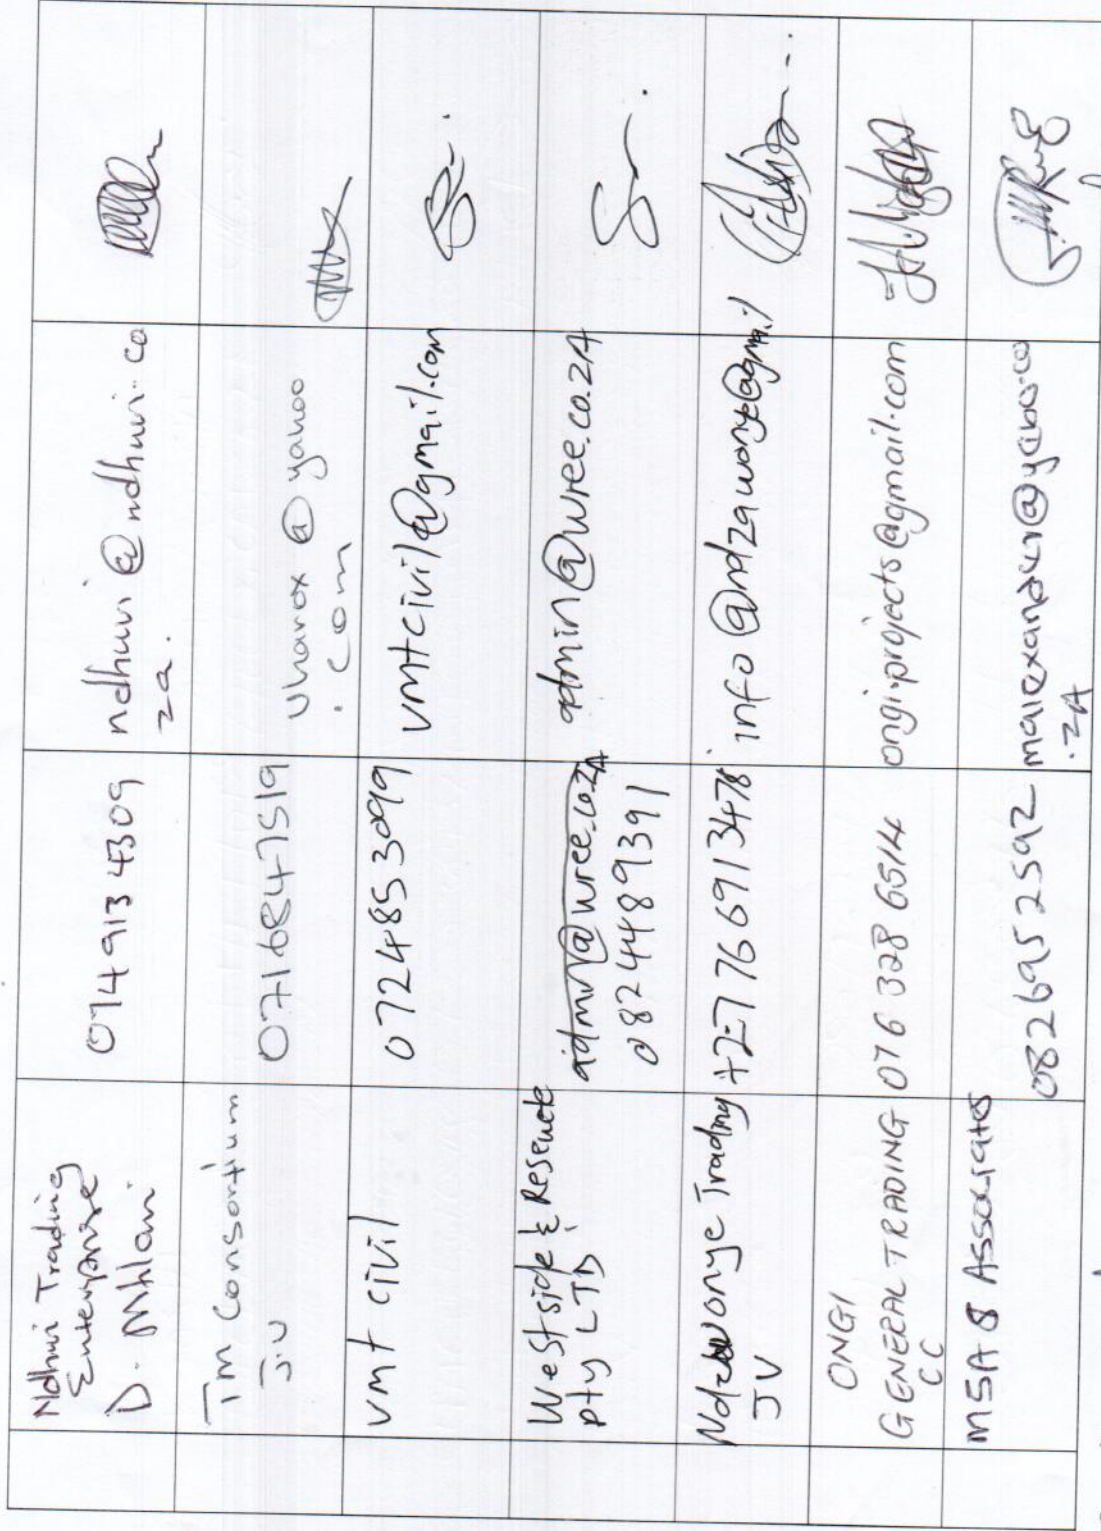 Ndhuvi Trading
Enterprise
D. Mhlari
0749134309
ndhuvi@ndhuvi.co
za.
Tm Consortium
J.V
0716847519
@ yahoo
.com
vmt civil
0724853099
vmtcivil@gmail.com
West side & Resencte
pty LTD
admin@wree.co.zA
0824489391
admin@wree.co.zA
Trading
JV
+27769134
info@ndzawonye@gmail
ONGI
GENERAL TRADING
CC
076 328 6514
ongi.projects@gmail.com
MSA & Associates
0826952592
.co
.ZA